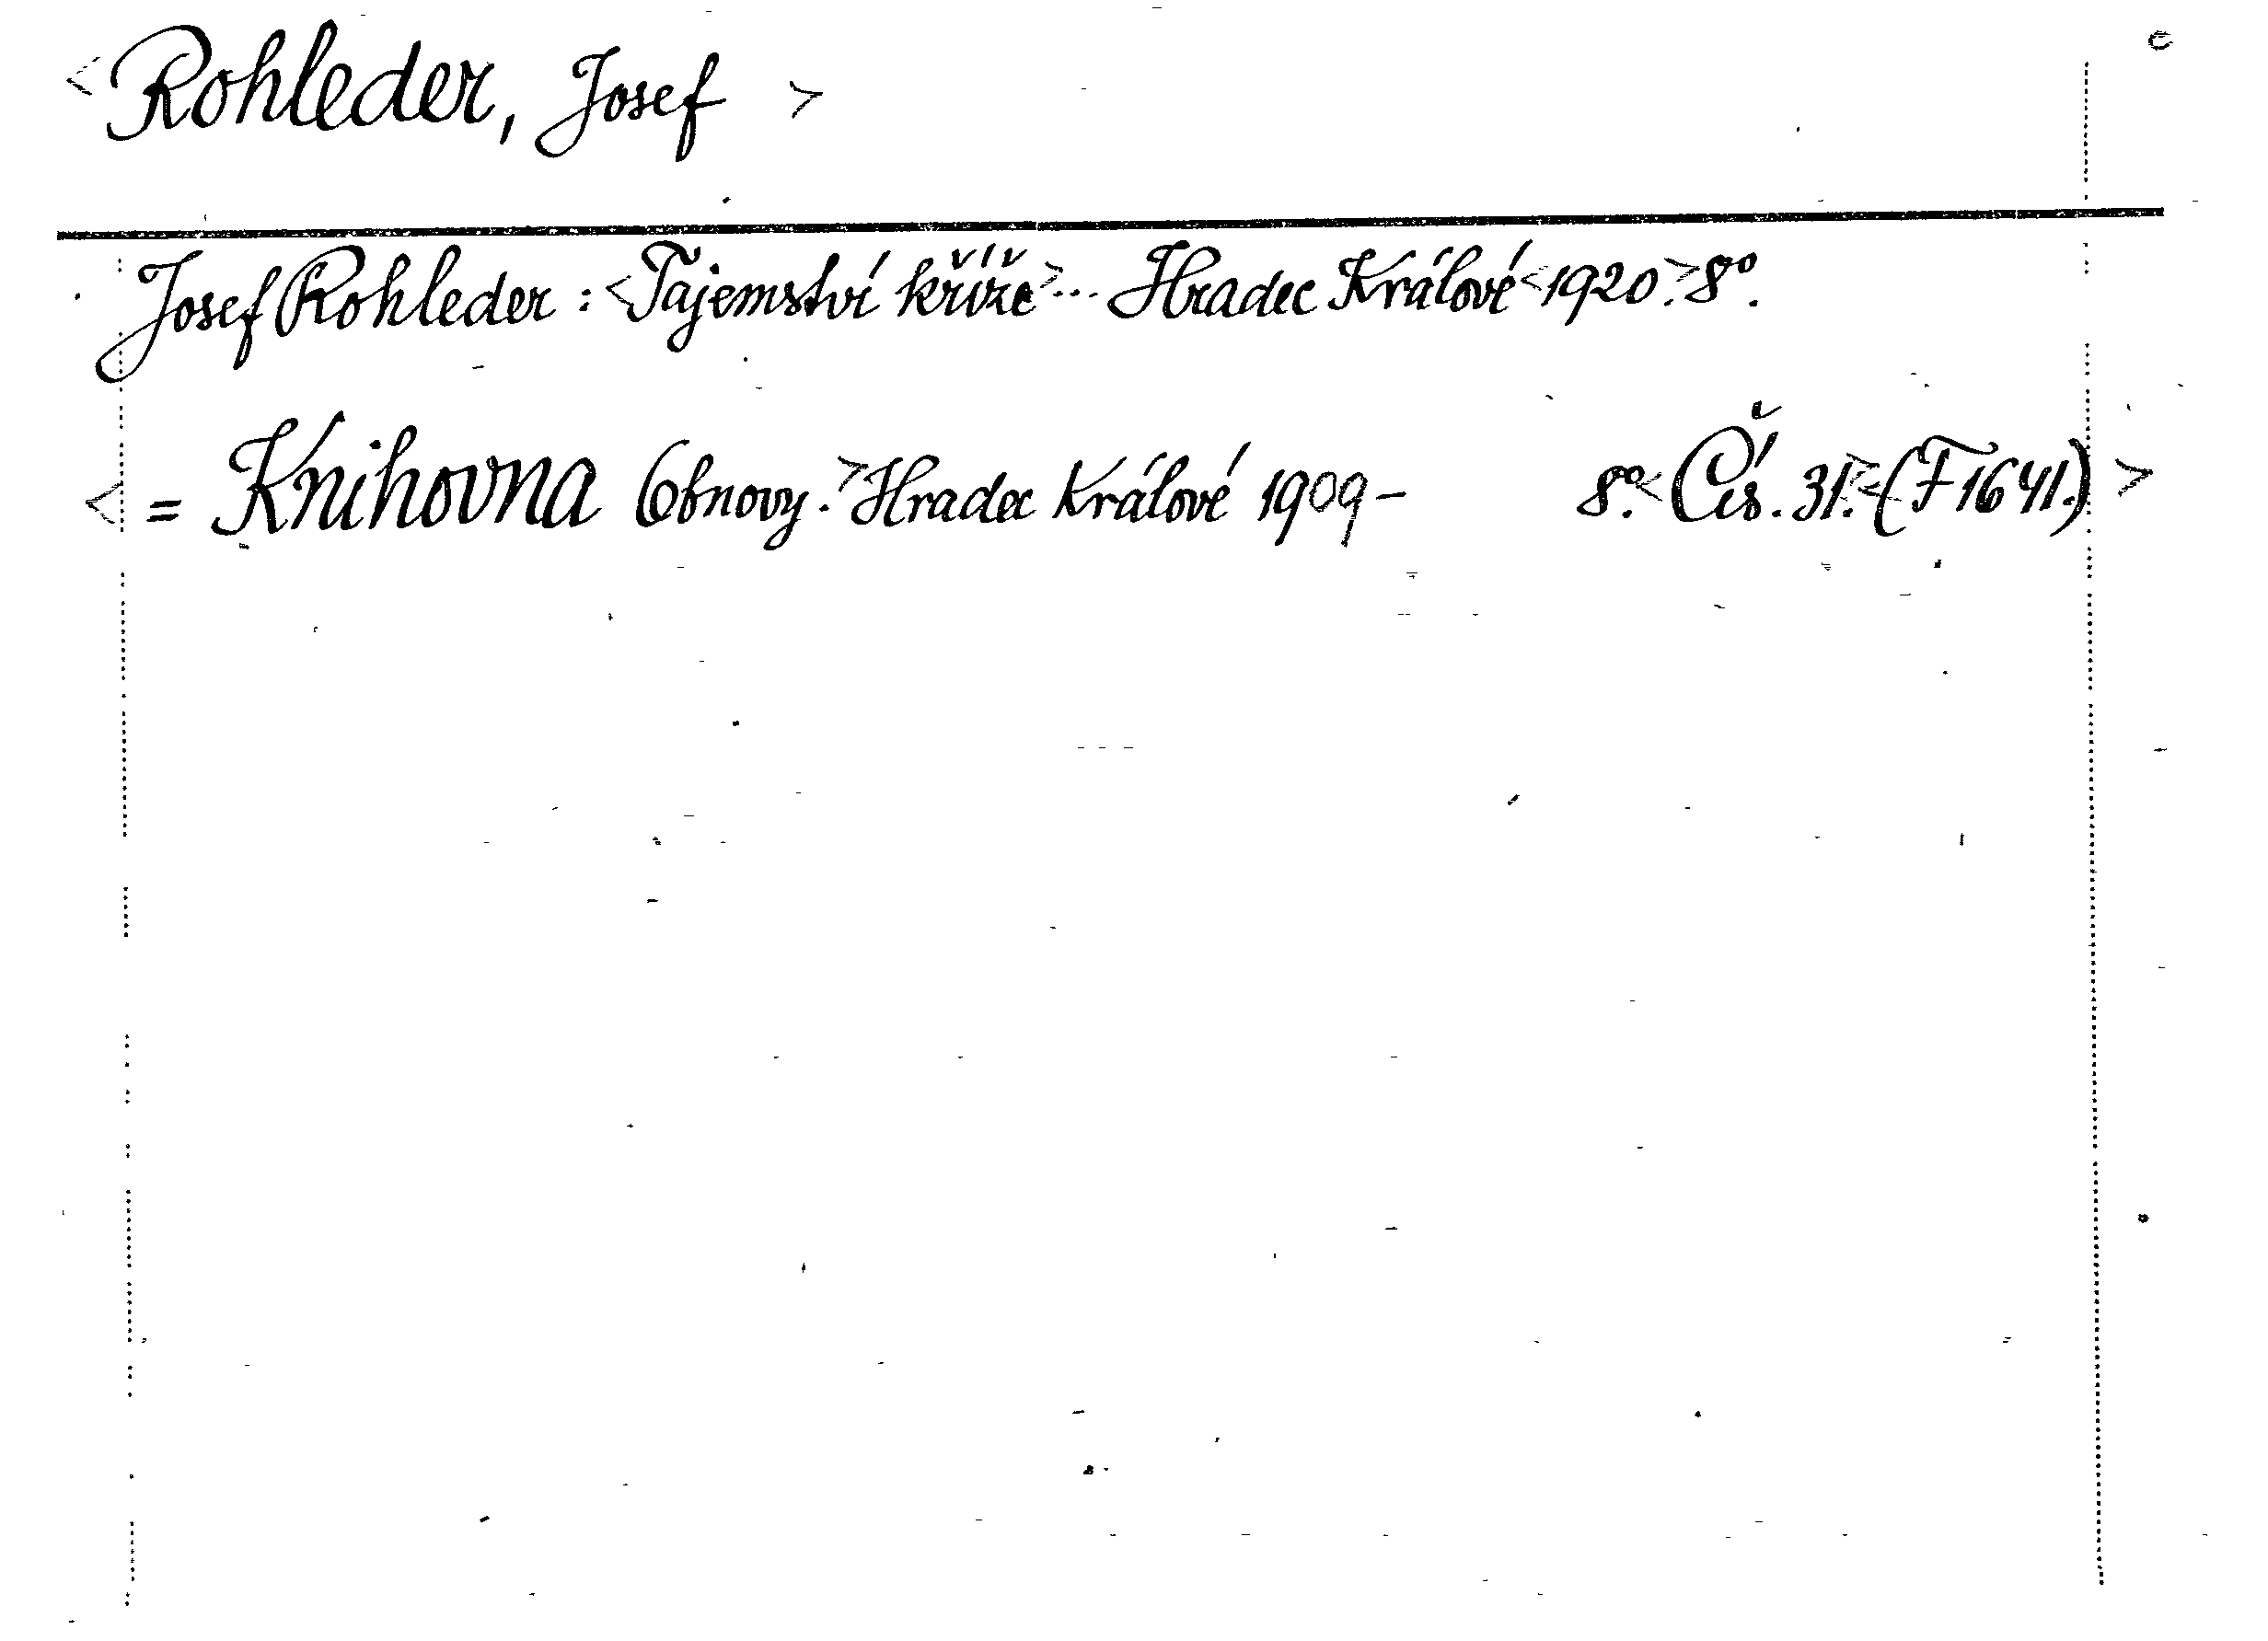 <Rohleder, Josef >
Josef Rohleder : <Tajemství kříže>... Hradec Králové <1920.> 8°.
< = Knihovna Obnovy.> Hradec Králové 1909- 8°.< Čís. 31.><(F 1641.) >